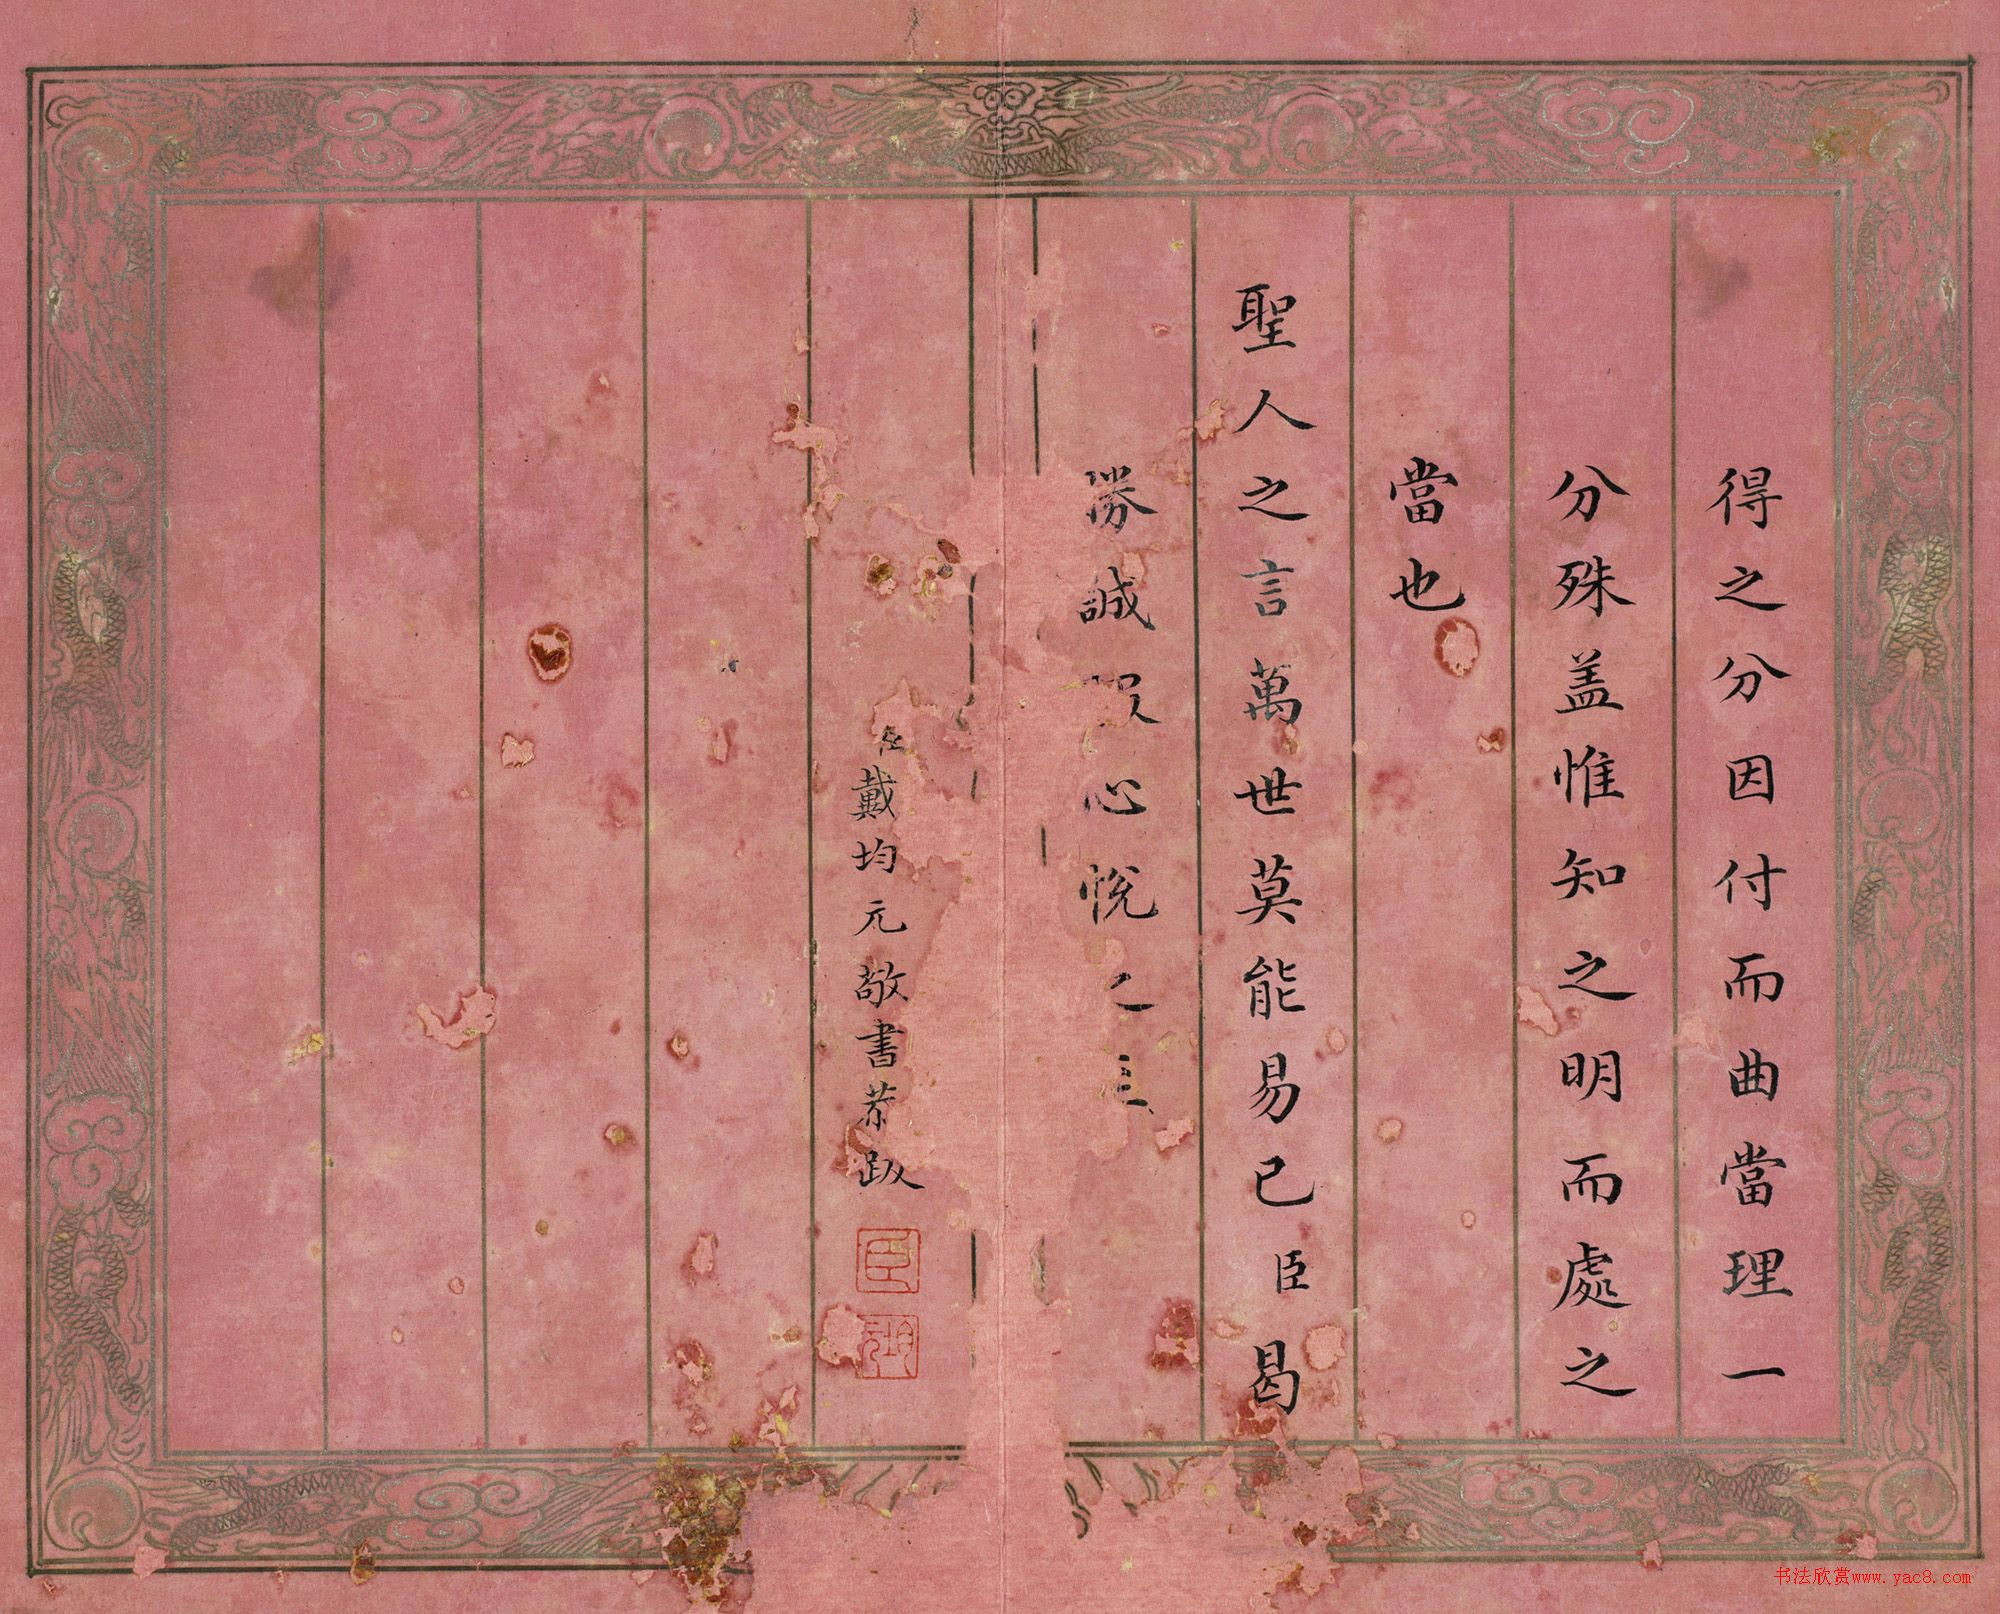 得之分因付而曲當理一
分殊盖惟知之明而處之
當也
聖人之言萬世莫能易已臣曷
勝誠 心悅之至
臣戴均元敬書恭跋
臣
書法欣赏www.yac8.com